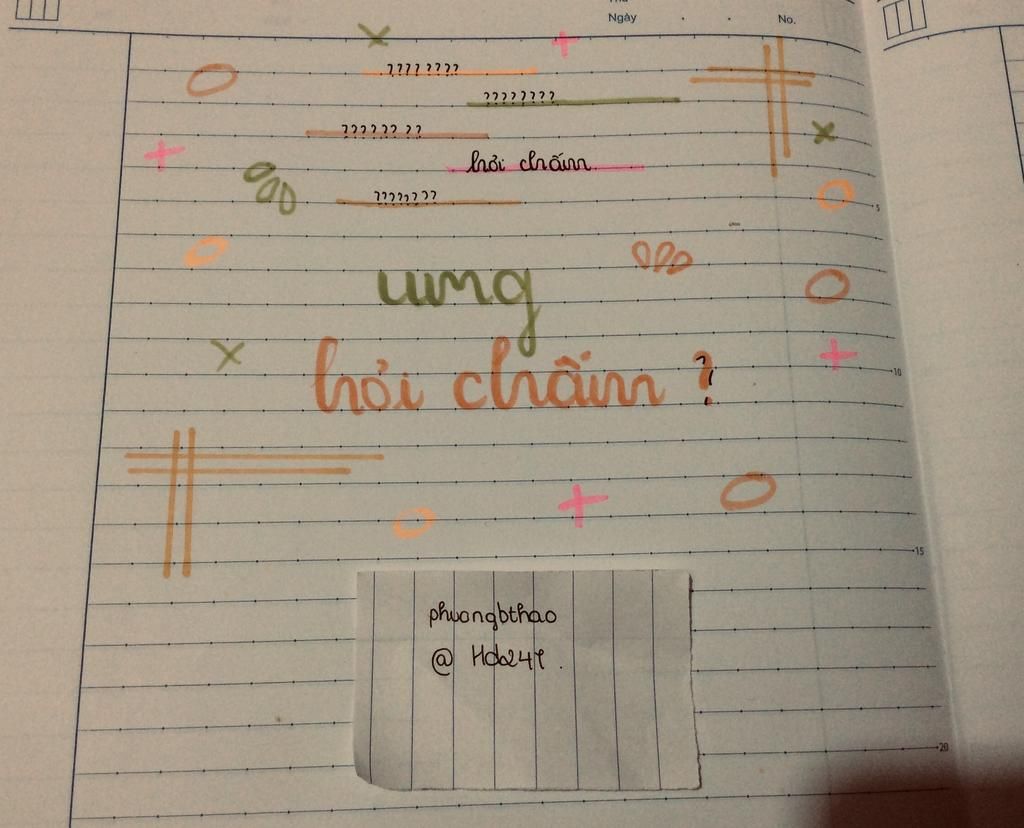 Ngày . . No.
???? ????
????????
?????? ??
hỏi chấm
????????
5
ưng
hỏi chấm ?
10
15
phuongbthao
@ Hdo247 .
20